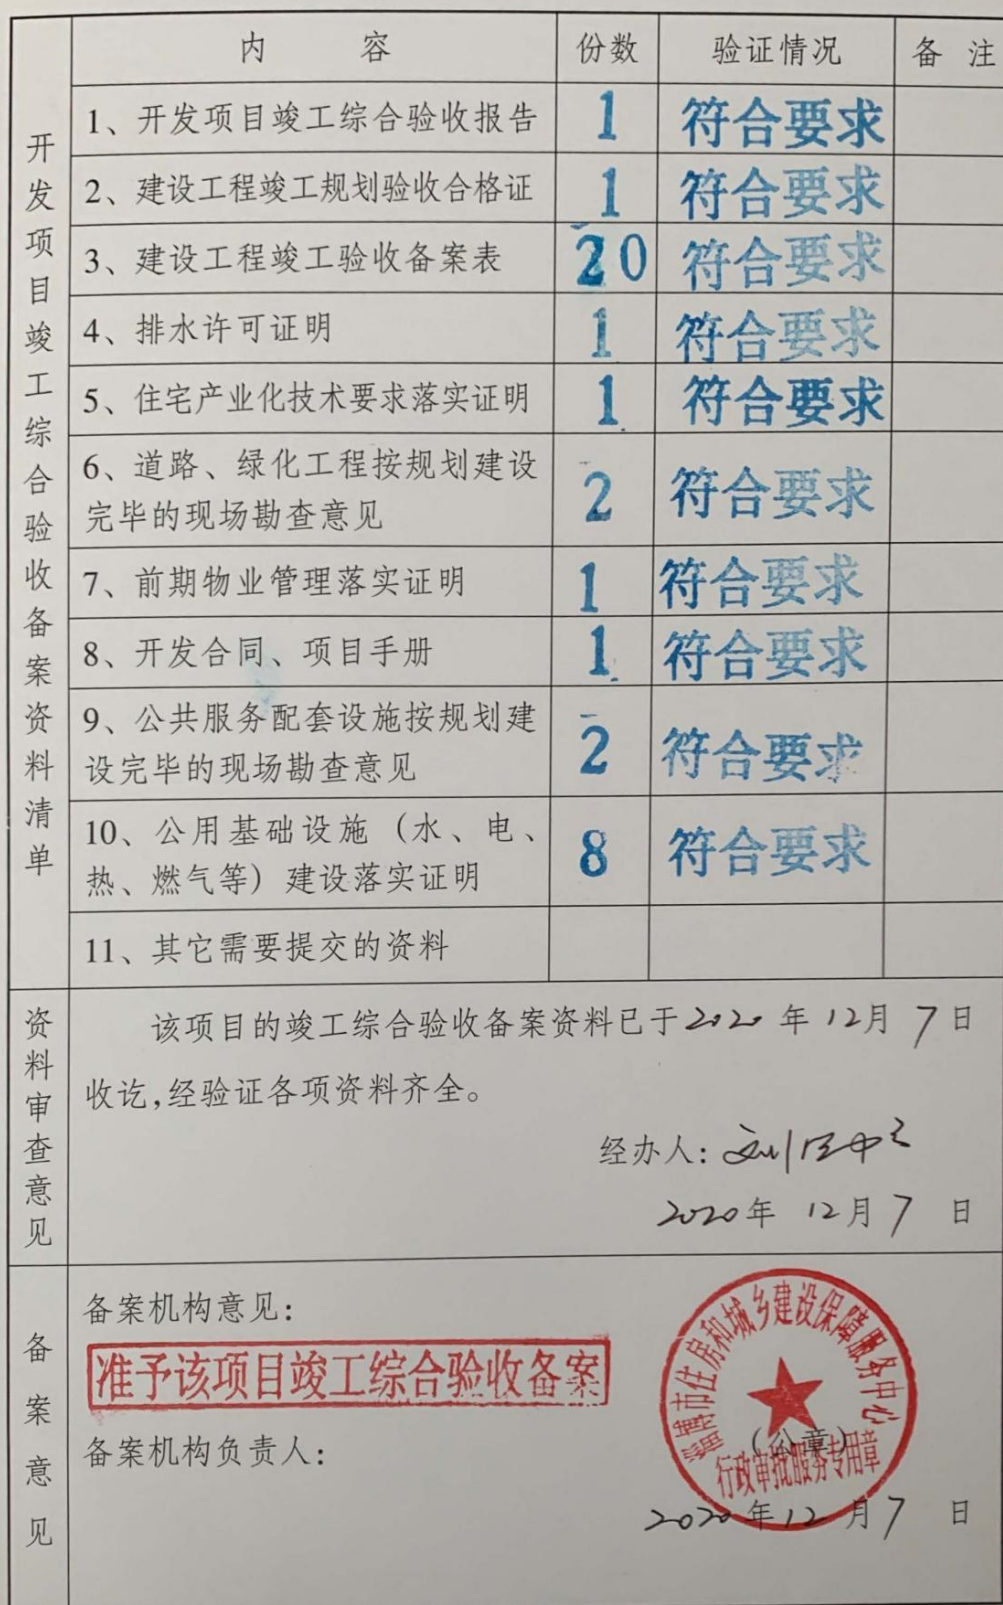 开发项目竣工综合验收备案资料清单
内 容 份数 验证情况 备 注
1、开发项目竣工综合验收报告 1 符合要求
2、建设工程竣工规划验收合格证 1 符合要求
3、建设工程竣工验收备案表 20 符合要求
4、排水许可证明 1 符合要求
5、住宅产业化技术要求落实证明 1 符合要求
6、道路、绿化工程按规划建设
完毕的现场勘查意见 2 符合要求
7、前期物业管理落实证明 1 符合要求
8、开发合同、项目手册 1 符合要求
9、公共服务配套设施按规划建
设完毕的现场勘查意见 2 符合要求
10、公用基础设施（水、电、
热、燃气等）建设落实证明 8 符合要求
11、其它需要提交的资料
资料审查意见
该项目的竣工综合验收备案资料已于2020年12月7日
收讫,经验证各项资料齐全。
经办人:
2020年 12月7 日
备案意见
备案机构意见:
准予该项目竣工综合验收备案
备案机构负责人:
淄博市住房和城乡建设保障服务中心
(公章)
行政审批服务专用章
2020年12月7 日